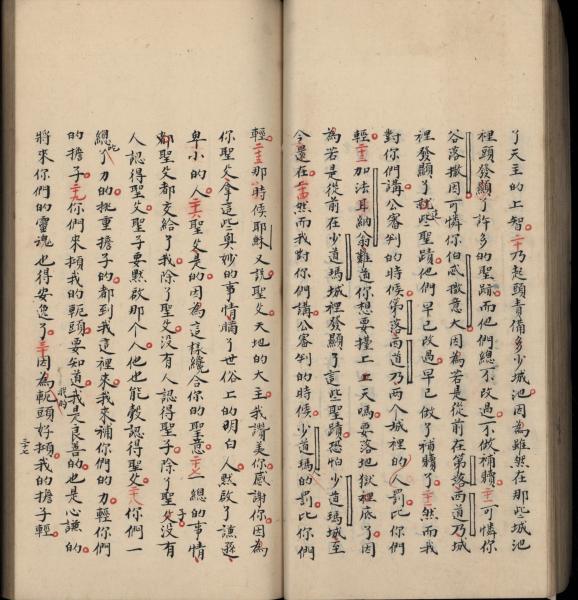 了天主的上智二十乃起頭責備多少城池因為雖然在那些城池
裡頭發顯了許多的聖蹟而他們總不改過不做補贖二十一可憐你
谷落撒因可憐你伯忒撒意大因為若是從前在第落西道乃城
裡發顯了就是些聖蹟他們早已改過早已做了補贖二十二然而我
對你們講公審判的時候第落西道乃兩个城裡的人罰比你們
輕二十三加法耳納翁難道你想要擡上上天嗎要落地獄裡底了因
為若是從前在少道瑪城裡發顯了這些聖蹟恐怕少道瑪城至
今還在二十四然而我對你們講公審判的時候少道瑪的罰比你們
輕二十五那時候耶穌又說聖父天地的大主我讚美你感謝你因為
你聖父拿這些奧妙的事情瞞了世俗上的明白人黙啟了謙遜
卑小的人二十六聖父是的因為這樣纔合你的聖意二十七一總的事情
都聖父都交給了我除了聖父沒有人認得聖子除了聖父子沒有
人認得聖父聖子要黙啟那个人他也能彀認得聖父二十八你們一
總吃了力的扰重擔子的都到我這裡來我來補你們的力輕你們
的擔子二十九你們來頫我的軛頭要知道我是良善的也是心謙的
將來你們的靈魂也得安逸了三十因為我的軛頭好頫我的擔子輕
三七